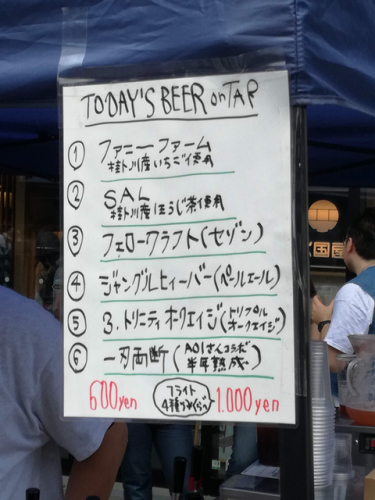 TODAY'S BEER on TAP
① ファニーファーム
桂川産いちご使用
② SAL
桂川産ほうじ茶使用
③ フェロークラフト(セゾン)
④ ジャングルヒィーバー(ペールエール)
⑤ 3.トリニティホクエイジ(トリプルオークエイジ)
⑥ 一刃両断(AOIさんコラボ
半年熟成)
600yen
フライト
4種
1.000yen
国屋